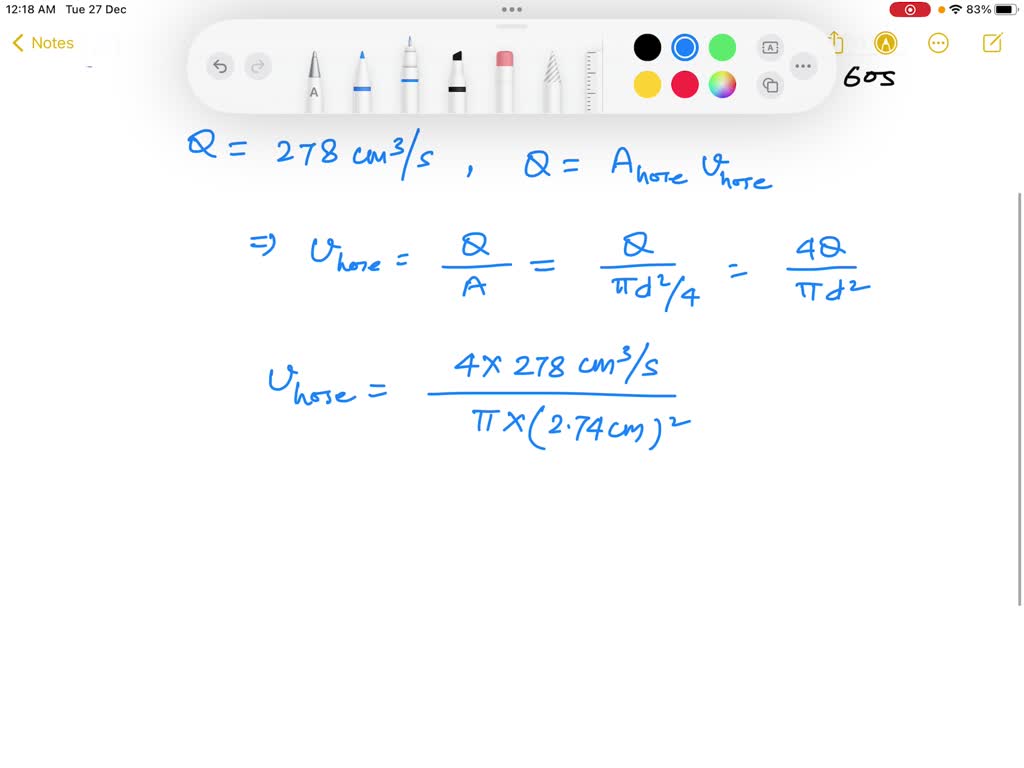 12:18 AM Tue 27 Dec 83%
Notes
A A
60s
Q = 278 cm³/s , Q = A_hose v_hose
⇒ v_hose = Q/A = Q/(πd²/4) = 4Q/(πd²)
v_hose = (4 × 278 cm³/s)/(π × (2.74 cm)²)